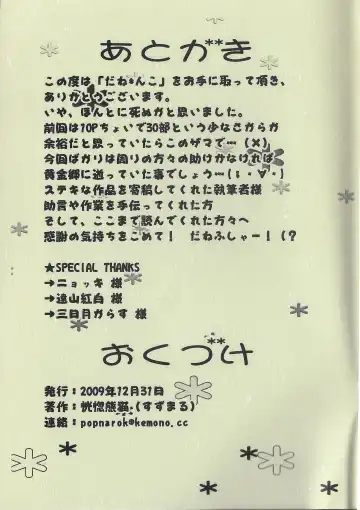 あとがき
この度は「だね*んこ」をお手に取って頂き、
ありがとうございます。
いや、ほんとに死ぬかと思いました。
前回は10Pちょいで30部という少なさからか
余裕だと思っていたらこのザマで…(×)
今回ばかりは周りの方々の助けがなければ
黄金郷に逝っていた事でしょう…(ι・∀・)
ステキな作品を寄稿してくれた執筆者様
助言や作業を手伝ってくれた方
そして、ここまで読んでくれた方々へ
感謝の気持ちをこめて! だねふしゃー!(?
★SPECIAL THANKS
→ニョッキ 様
→遠山紅白 様
→三日月からす 様
おくづけ
発行:2009年12月31日
著作:恍惚熊猫(すずまる)
連絡:popnarok@kemono.cc